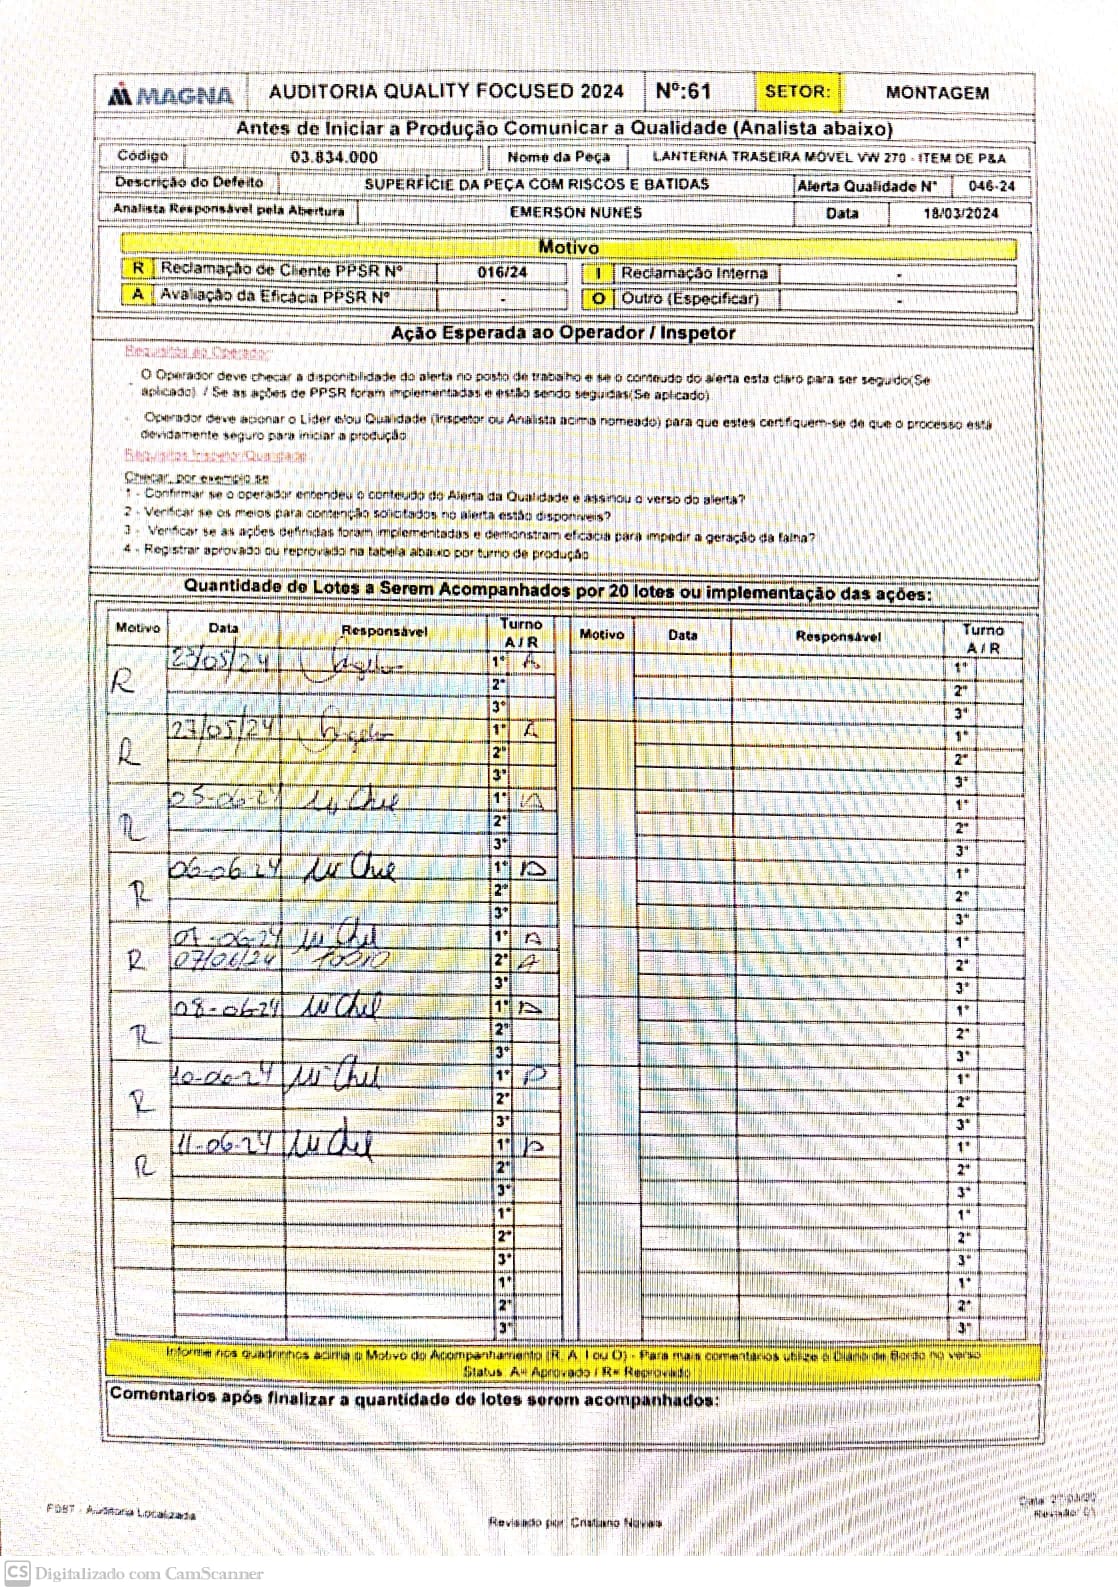 MAGNA AUDITORIA QUALITY FOCUSED 2024 Nº:61 SETOR: MONTAGEM
Antes de Iniciar a Produção Comunicar a Qualidade (Analista abaixo)
Código 03.834.000 Nome da Peça LANTERNA TRASEIRA MÓVEL VW 270 - ITEM DE P&A
Descrição do Defeito SUPERFÍCIE DA PEÇA COM RISCOS E BATIDAS Alerta Qualidade N° 046-24
Analista Responsável pela Abertura EMERSON NUNES Data 18/03/2024
Motivo
R Reclamação de Cliente PPSR Nº 016/24 I Reclamação Interna -
A Avaliação da Eficácia PPSR Nº - O Outro (Especificar) -
Ação Esperada ao Operador / Inspetor
Requisitos ao Operador:
O Operador deve checar a disponibilidade do alerta no posto de trabalho e se o conteudo do alerta esta claro para ser seguido(Se
aplicado) / Se as ações de PPSR foram implementadas e estão sendo seguidas(Se aplicado)
Operador deve acionar o Lider e/ou Qualidade (Inspetor ou Analista acima nomeado) para que estes certifiquem-se de que o processo está
devidamente seguro para iniciar a produção
Requisitos Inspetor/Qualidade
Checar, por exemplo se
1 - Confirmar se o operador entendeu o conteudo do Alerta da Qualidade e assinou o verso do alerta?
2 - Verificar se os meios para contenção solicitados no alerta estão disponiveis?
3 - Verificar se as ações definidas foram implementadas e demonstram eficácia para impedir a geração da falha?
4 - Registrar aprovado ou reprovado na tabela abaixo por turno de produção
Quantidade de Lotes a Serem Acompanhados por 20 lotes ou implementação das ações:
Motivo Data Responsável Turno A / R Motivo Data Responsável Turno A / R
R 23/05/24 1° A 1°
2° 2°
3° 3°
R 27/05/24 1° A 1°
2° 2°
3° 3°
R 05-06-24 Michel 1° A 1°
2° 2°
3° 3°
R 06-06-24 Michel 1° A 1°
2° 2°
3° 3°
R 07-06-24 Michel 1° A 1°
07/06/24 2° A 2°
3° 3°
R 08-06-24 Michel 1° A 1°
2° 2°
3° 3°
R 10-06-24 Michel 1° A 1°
2° 2°
3° 3°
R 11-06-24 Michel 1° A 1°
2° 2°
3° 3°
1° 1°
2° 2°
3° 3°
1° 1°
2° 2°
3° 3°
Informe nos quadrinhos acima o Motivo do Acompanhamento (R, A, I ou O) - Para mais comentários utilize o Diário de Bordo no verso
Status A= Aprovado / R= Reprovado
Comentarios após finalizar a quantidade de lotes serem acompanhados:
F087 - Auditoria Localizada
Revisado por Cristiano Novais
Revisão 01
CS Digitalizado com CamScanner